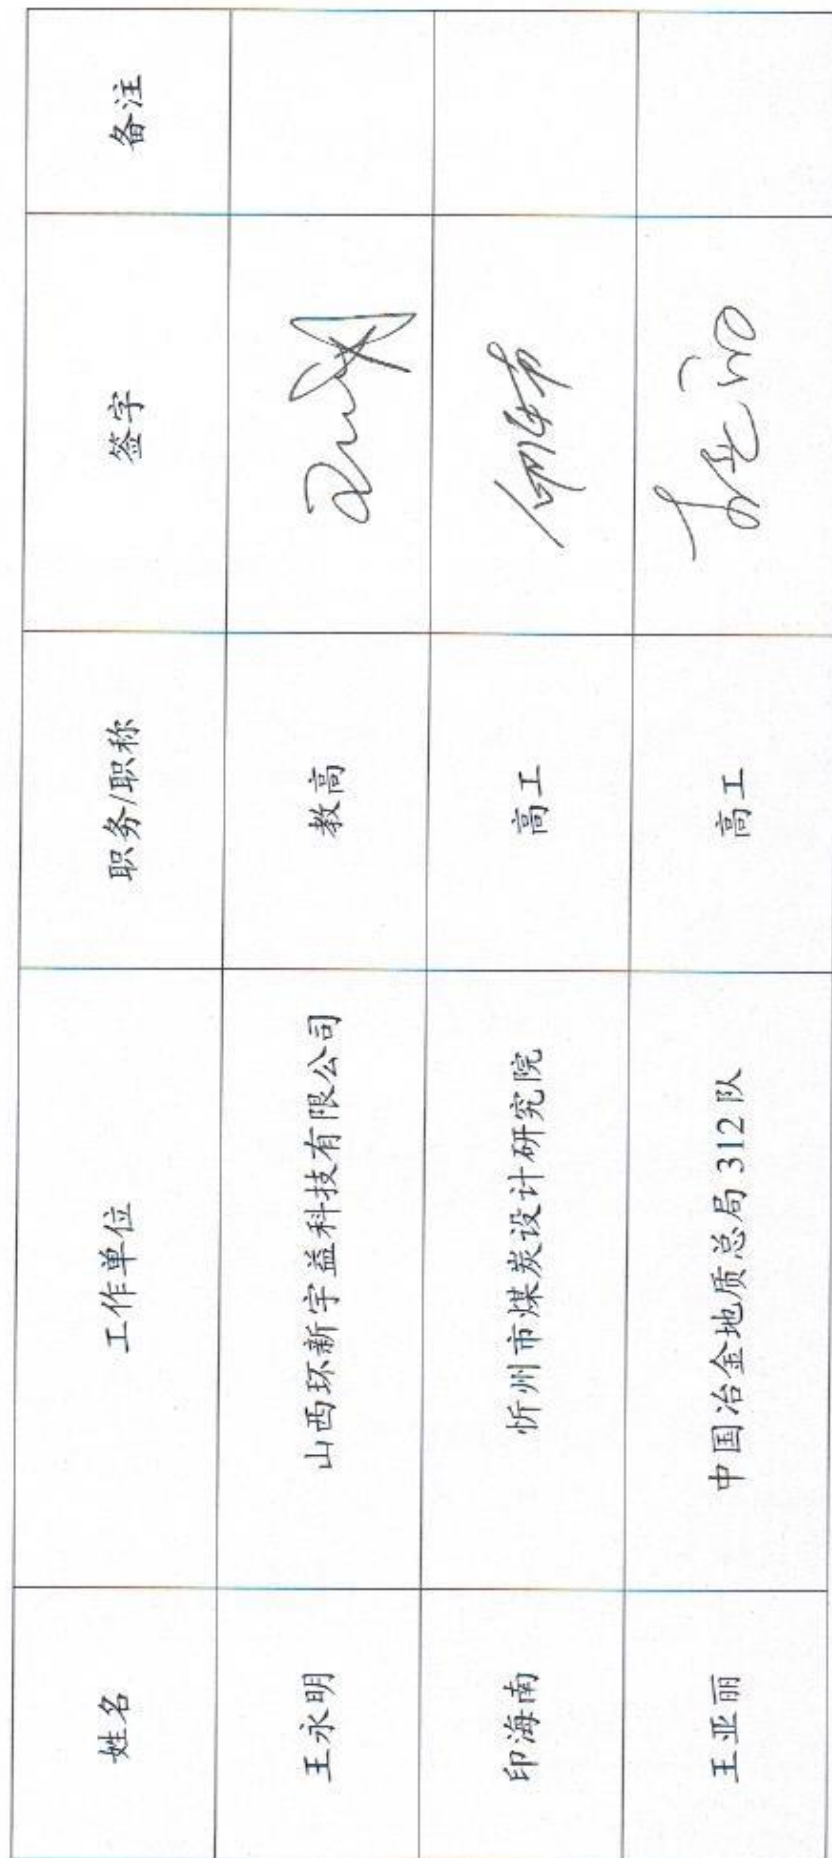 姓名 工作单位 职务/职称 签字 备注
王永明 山西环新宇益科技有限公司 教高
印海南 忻州市煤炭设计研究院 高工
王亚丽 中国冶金地质总局312队 高工